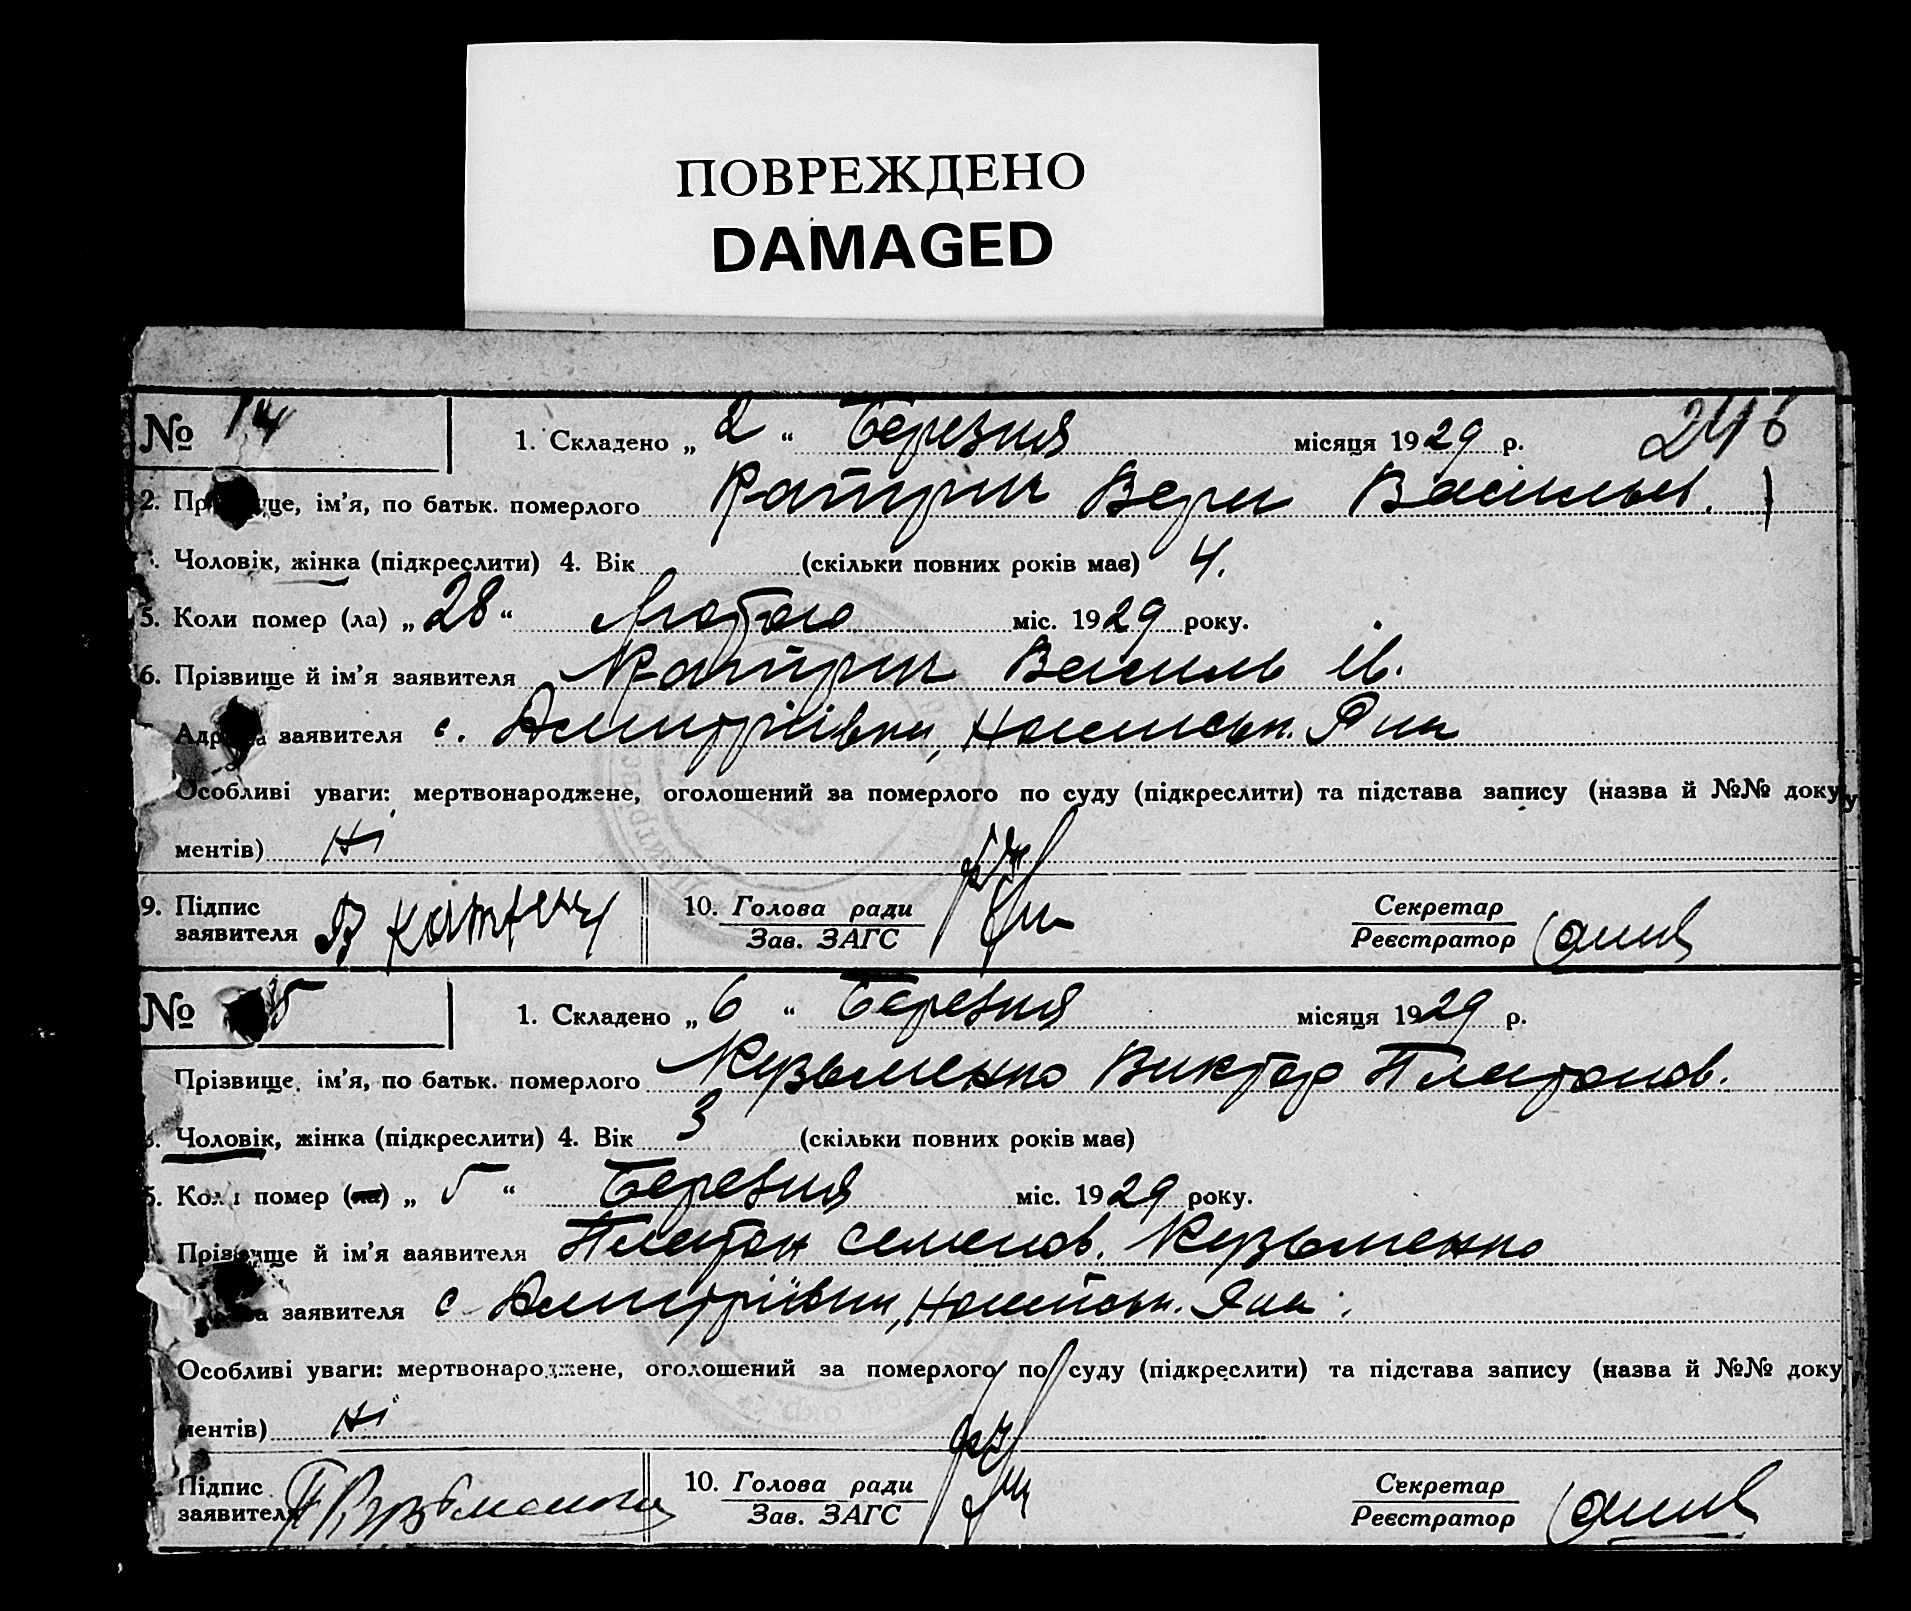 ПОВРЕЖДЕНО
DAMAGED
№ 14 1. Складено „ 2 “ Березня місяця 1929 р. 246
2. Пр уще, ім'я, по батьк. померлого Катрич Вери Васильов.
Чоловік, жінка (підкреслити) 4. Вік (скільки повних років має) 4.
5. Коли помер (ла) „ 28 “ Лютого міс. 1929 року.
6. Прізвище й ім'я заявителя Катрич Василь Ів.
Адр а заявителя с. Дмитріївки,
Особливі уваги: мертвонароджене, оголошений за померлого по суду (підкреслити) та підстава запису (назва й №№ доку
ментів) Ні
9. Підпис заявителя В Катрич 10. Голова ради Зав. ЗАГС Секретар Реєстратор
№ 1. Складено „ 6 “ Березня місяця 1929 р.
Прізвище, ім'я, по батьк. померлого Кузьменко Виктор Платонов.
Чоловік, жінка (підкреслити) 4. Вік 3 (скільки повних років має)
5. Коли помер (ла) „ 5 “ Березня міс. 1929 року.
Прізвище й ім'я заявителя Платон Семенов. Кузьменко
а заявителя с Дмитріївки,
Особливі уваги: мертвонароджене, оголошений за померлого по суду (підкреслити) та підстава запису (назва й №№ доку
ментів) Ні
Підпис заявителя П Кузьменко 10. Голова ради Зав. ЗАГС Секретар Реєстратор